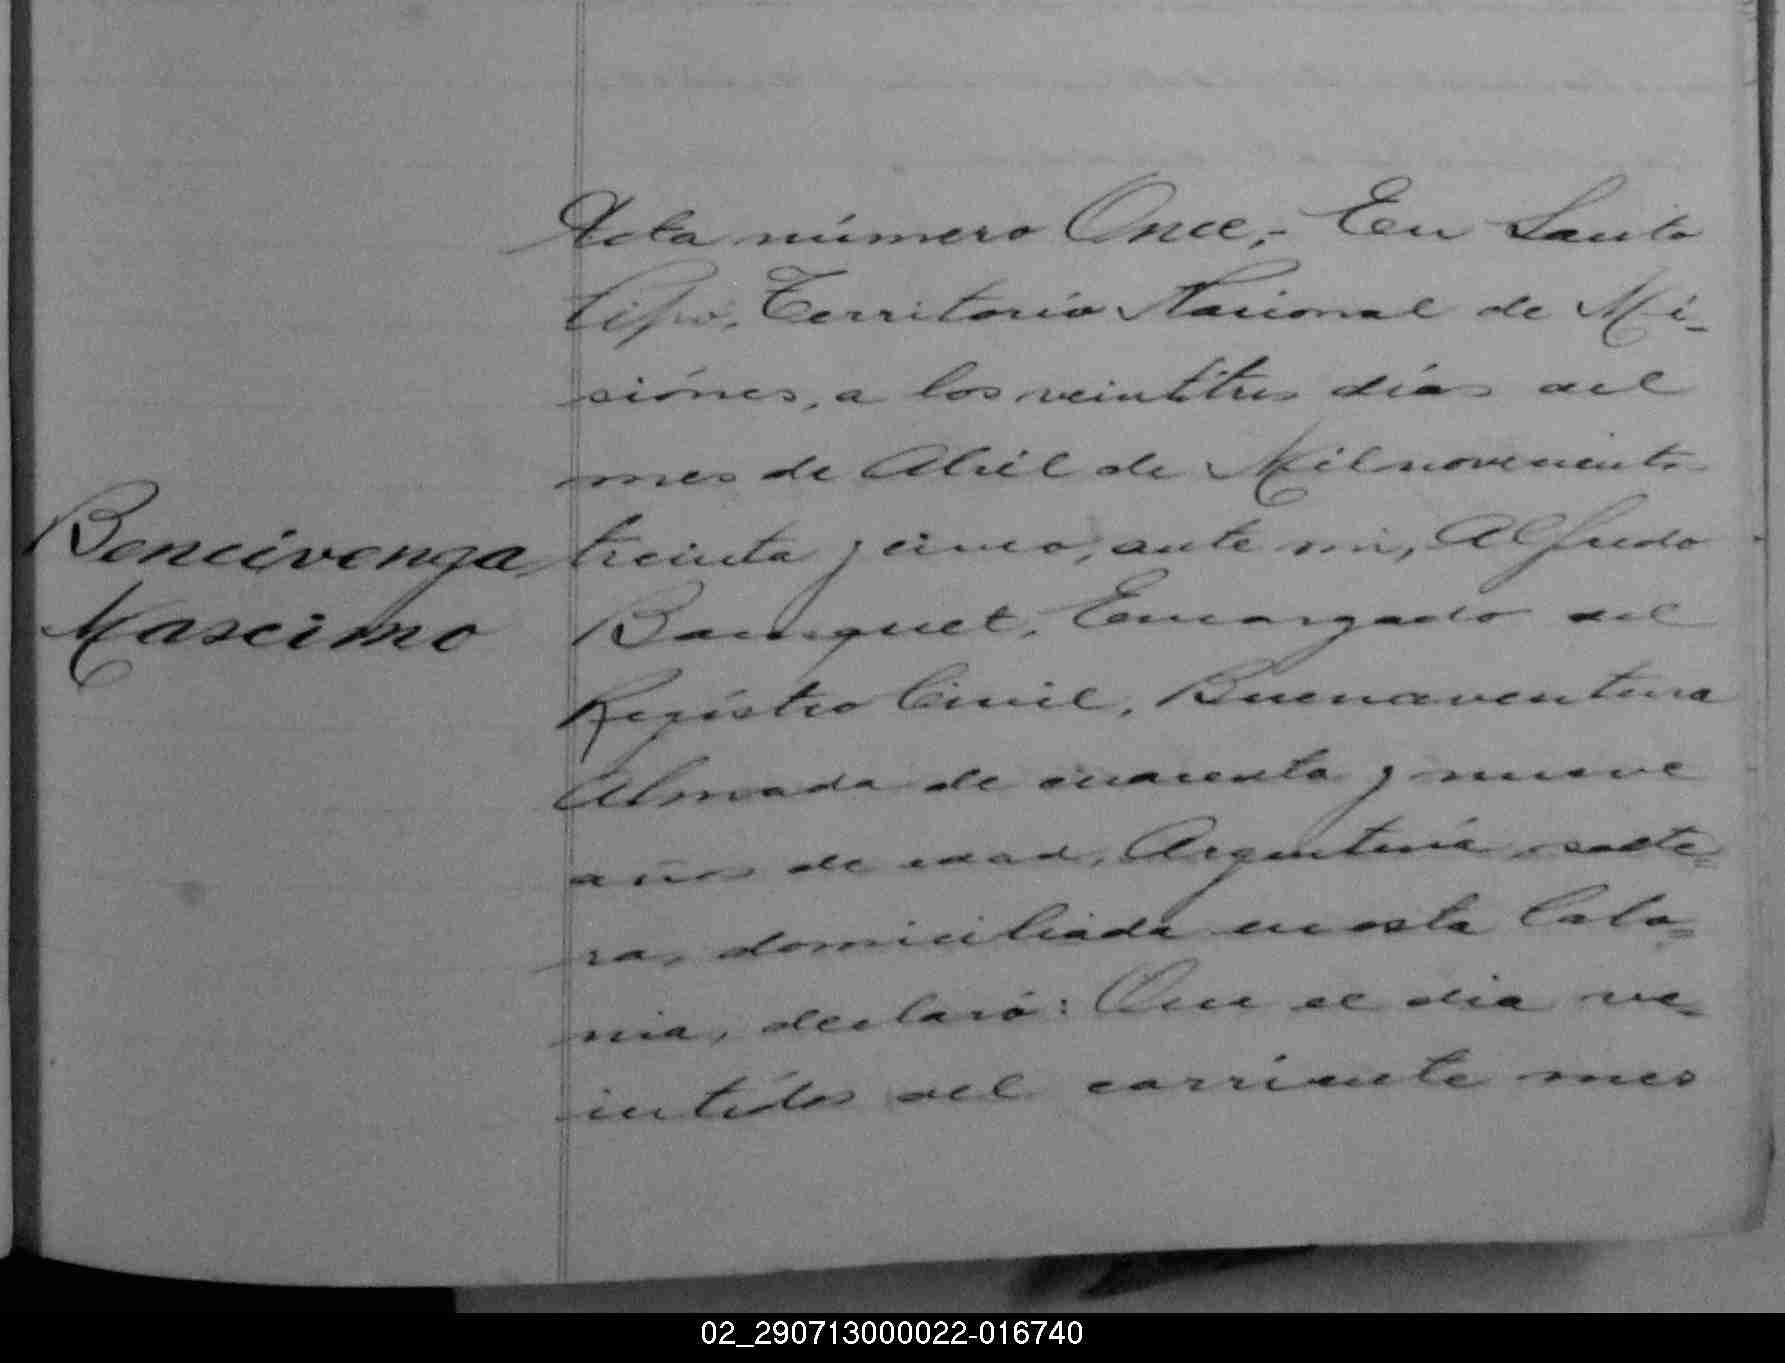 Acta número Once.- En Santo
Pipó, Territorio Nacional de Mi-
siónes, a los veintitres días del
mes de Abril de Mil novecientos
Bencivenga
treinta y cinco, ante mi, Alfredo
Mascimo
Encargado del
Registro Civil, Buenaventura
Almada de cuarenta y nueve
años de edad, Argentina, solte=
ra, domiciliada en esta Colo=
nia, declaró: Que el dia ve=
intidos del corriente mes
02_290713000022-016740